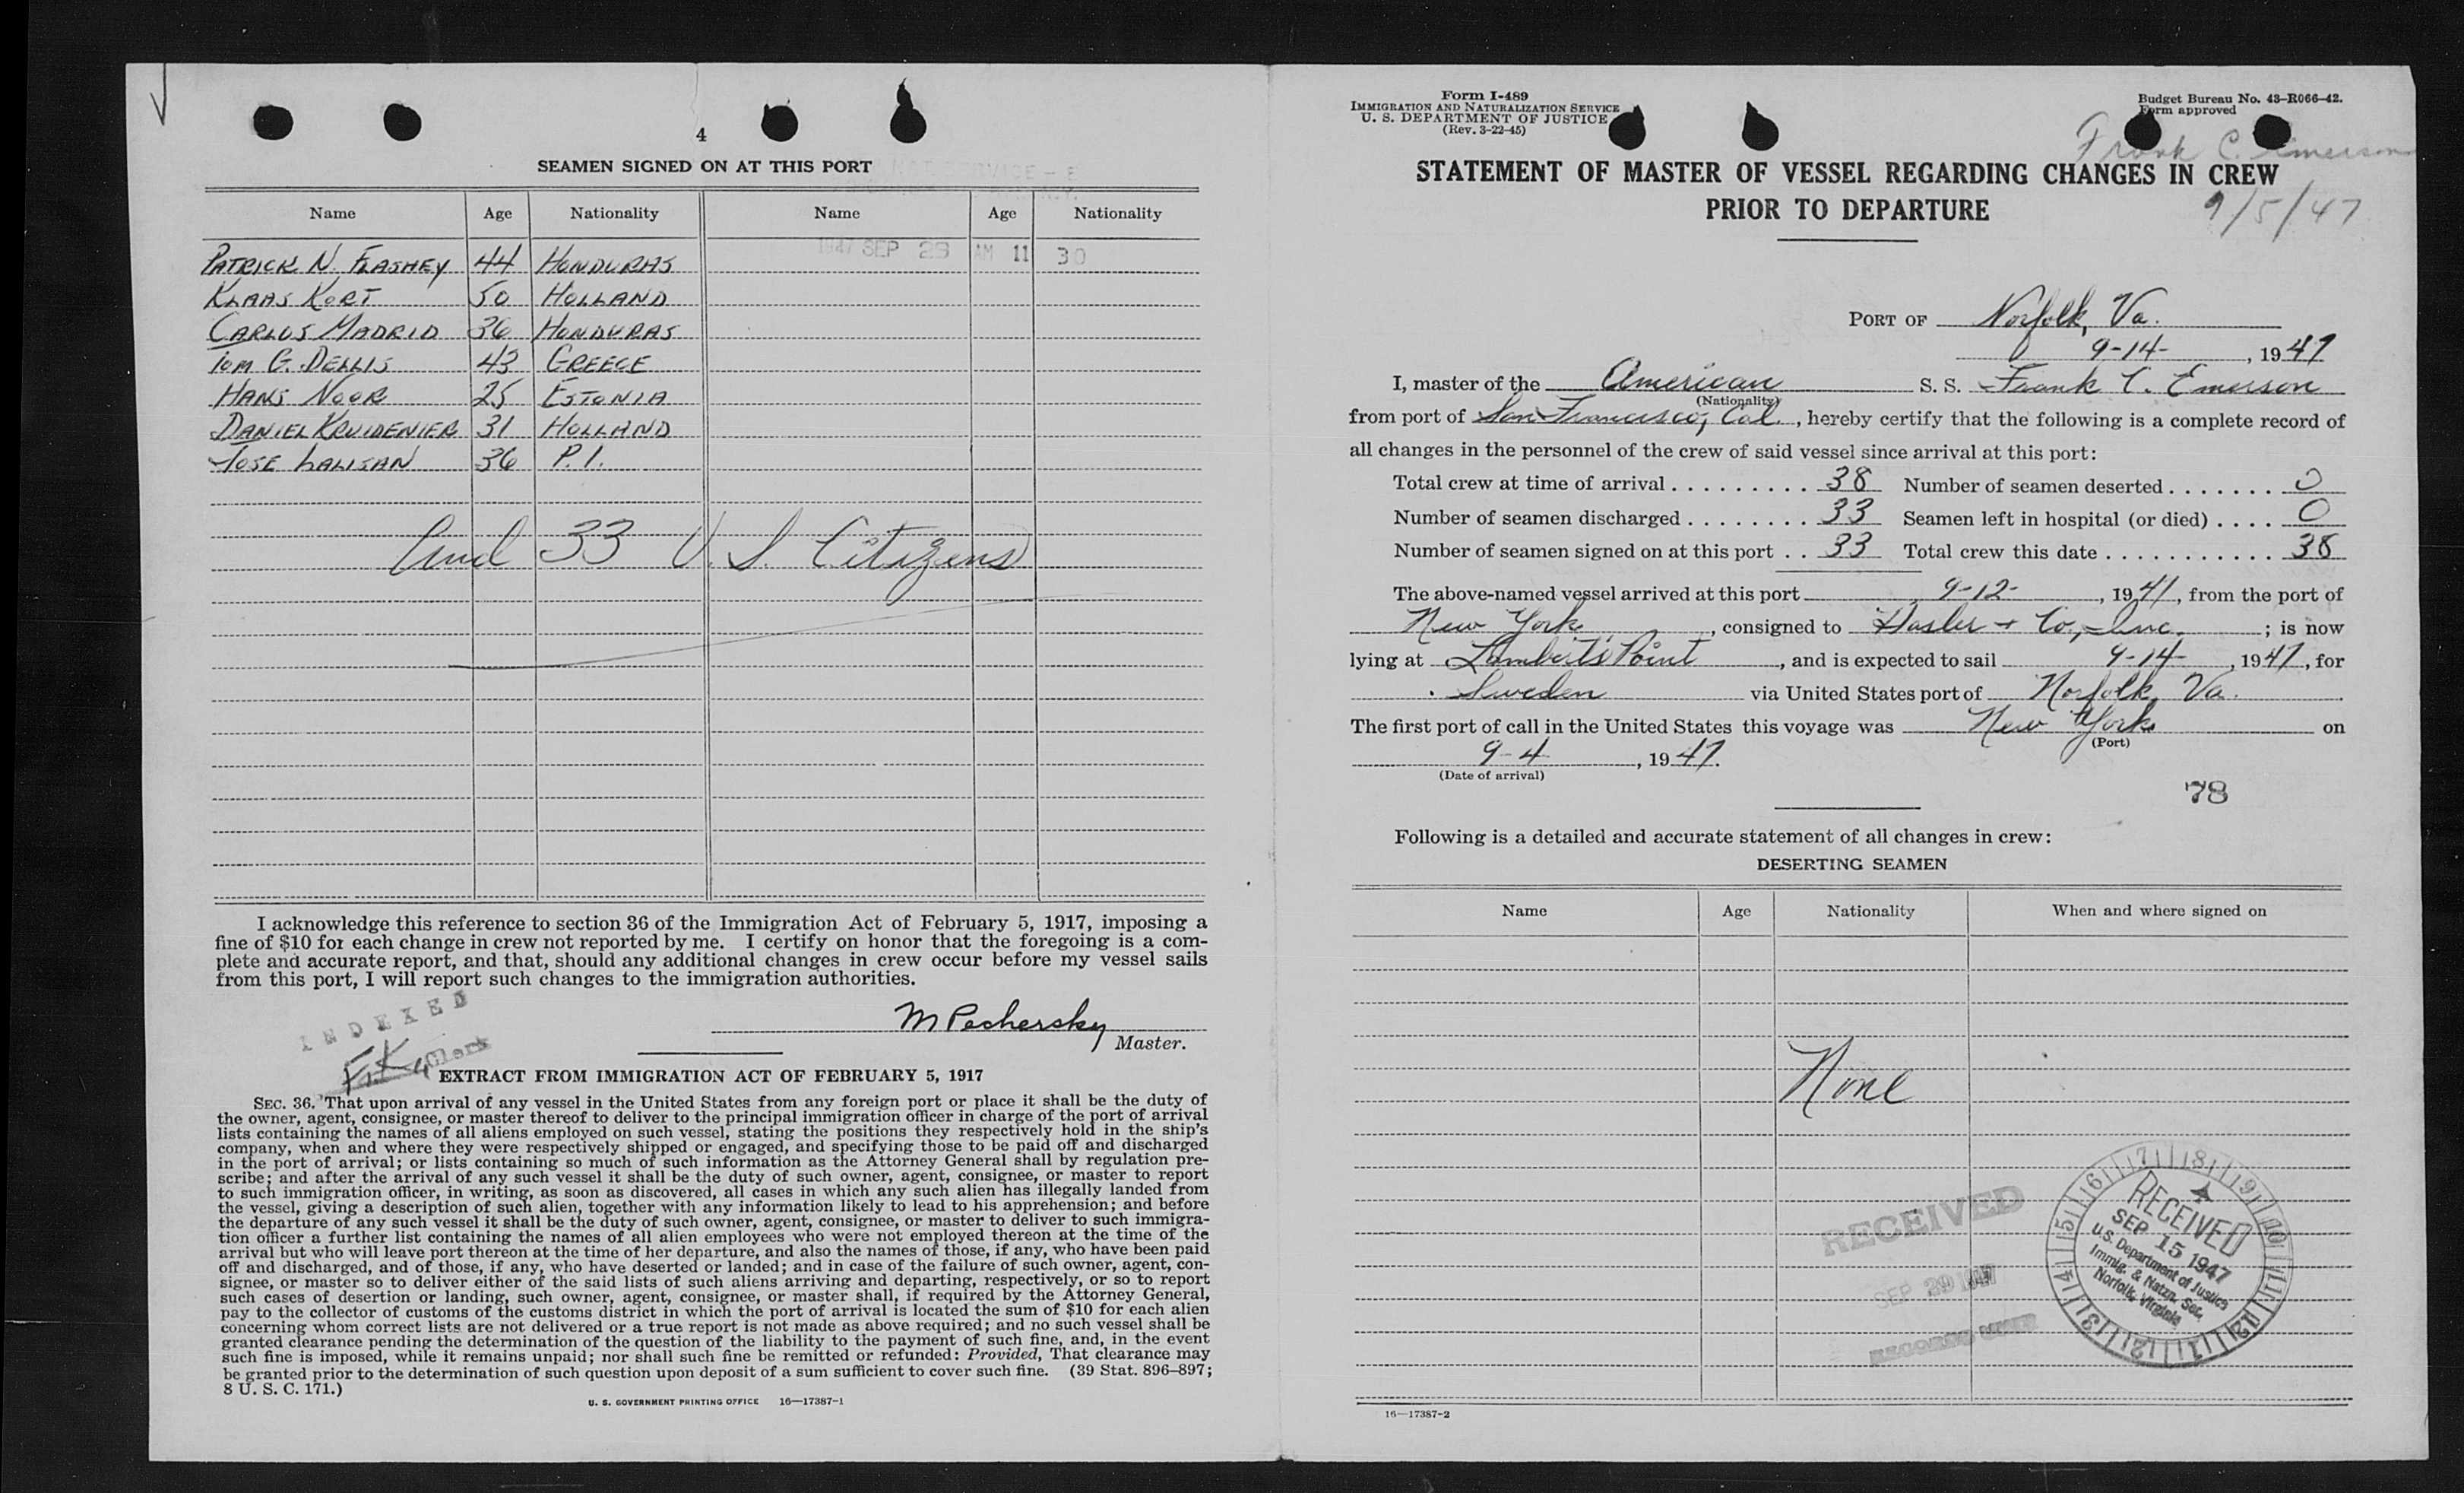 4
SEAMEN SIGNED ON AT THIS PORT
Name Age Nationality Name Age Nationality
1947 SEP 29 AM 11 30
PATRICK N. FLASHEY 44 HONDURAS
KLAAS KORT 50 HOLLAND
CARLOS MADRID 36 HONDURAS
TOM G. DELLIS 43 GREECE
HANS NOOR 25 ESTONIA
DANIEL KRUIDENIER 31 HOLLAND
JOSE LALISAN 36 P.I.
And 33 U.S. Citizens
I acknowledge this reference to section 36 of the Immigration Act of February 5, 1917, imposing a
fine of $10 for each change in crew not reported by me. I certify on honor that the foregoing is a com-
plete and accurate report, and that, should any additional changes in crew occur before my vessel sails
from this port, I will report such changes to the immigration authorities.
INDEXED
M Pechersky
Master.
Clerk
EXTRACT FROM IMMIGRATION ACT OF FEBRUARY 5, 1917
SEC. 36. That upon arrival of any vessel in the United States from any foreign port or place it shall be the duty of
the owner, agent, consignee, or master thereof to deliver to the principal immigration officer in charge of the port of arrival
lists containing the names of all aliens employed on such vessel, stating the positions they respectively hold in the ship's
company, when and where they were respectively shipped or engaged, and specifying those to be paid off and discharged
in the port of arrival; or lists containing so much of such information as the Attorney General shall by regulation pre-
scribe; and after the arrival of any such vessel it shall be the duty of such owner, agent, consignee, or master to report
to such immigration officer, in writing, as soon as discovered, all cases in which any such alien has illegally landed from
the vessel, giving a description of such alien, together with any information likely to lead to his apprehension; and before
the departure of any such vessel it shall be the duty of such owner, agent, consignee, or master to deliver to such immigra-
tion officer a further list containing the names of all alien employees who were not employed thereon at the time of the
arrival but who will leave port thereon at the time of her departure, and also the names of those, if any, who have been paid
off and discharged, and of those, if any, who have deserted or landed; and in case of the failure of such owner, agent, con-
signee, or master so to deliver either of the said lists of such aliens arriving and departing, respectively, or so to report
such cases of desertion or landing, such owner, agent, consignee, or master shall, if required by the Attorney General,
pay to the collector of customs of the customs district in which the port of arrival is located the sum of $10 for each alien
concerning whom correct lists are not delivered or a true report is not made as above required; and no such vessel shall be
granted clearance pending the determination of the question of the liability to the payment of such fine, and, in the event
such fine is imposed, while it remains unpaid; nor shall such fine be remitted or refunded: Provided, That clearance may
be granted prior to the determination of such question upon deposit of a sum sufficient to cover such fine. (39 Stat. 896–897;
8 U. S. C. 171.)
U. S. GOVERNMENT PRINTING OFFICE 16—17387-1
Form I-489
IMMIGRATION AND NATURALIZATION SERVICE
U. S. DEPARTMENT OF JUSTICE
(Rev. 3-22-45)
Budget Bureau No. 43-R066-42.
Form approved
Frank C. Emerson
STATEMENT OF MASTER OF VESSEL REGARDING CHANGES IN CREW
PRIOR TO DEPARTURE
9/5/47
PORT OF Norfolk, Va.
9-14-, 1947
I, master of the American S. S. Frank C. Emerson
(Nationality)
from port of San Francisco, Cal., hereby certify that the following is a complete record of
all changes in the personnel of the crew of said vessel since arrival at this port:
Total crew at time of arrival . . . . . . . . . . 38 Number of seamen deserted . . . . . . . 0
Number of seamen discharged . . . . . . . . 33 Seamen left in hospital (or died) . . . . 0
Number of seamen signed on at this port . . 33 Total crew this date . . . . . . . . . . . . 38
The above-named vessel arrived at this port 9-12-, 1947, from the port of
New York, consigned to Hasler + Co., Inc.; is now
lying at Lamberts Point, and is expected to sail 9-14-, 1947, for
Sweden via United States port of Norfolk, Va.
The first port of call in the United States this voyage was New York on
(Port)
9-4, 1947.
(Date of arrival)
78
Following is a detailed and accurate statement of all changes in crew:
DESERTING SEAMEN
Name Age Nationality When and where signed on
None
RECEIVED
SEP 29 1947
RECORDS
5 6 7 8 9 10 11 12 1 2 3 4
RECEIVED
SEP 15 1947
U.S. Department of Justice
Immig. & Natzn. Ser.
Norfolk, Virginia
16—17387-2